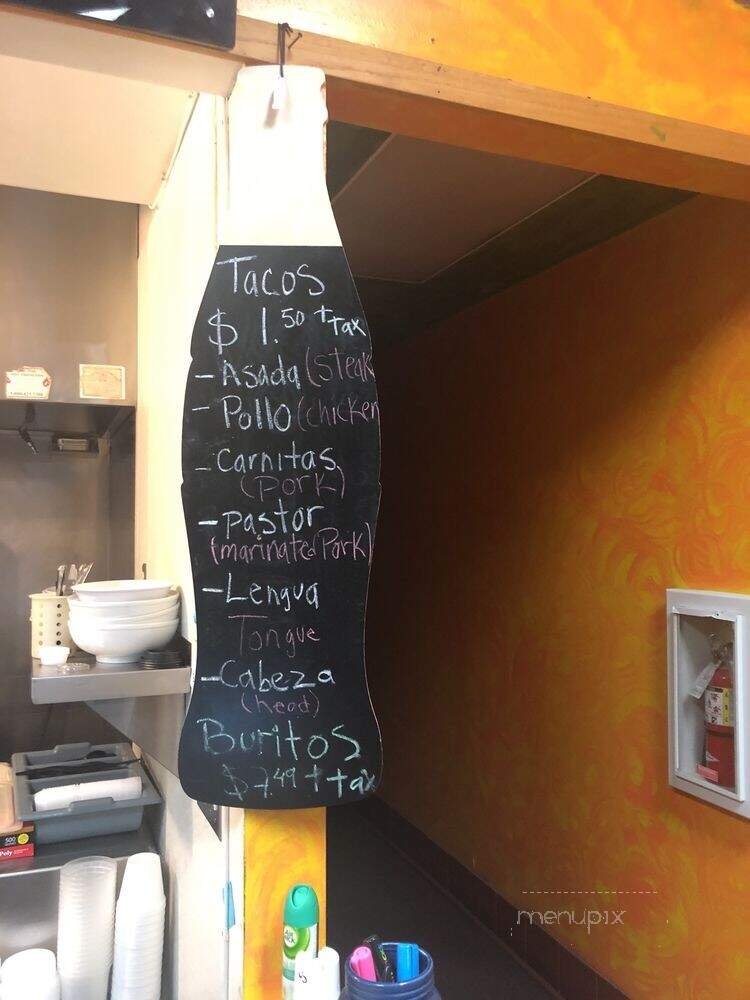 Tacos
$ 1.50 + tax
- Asada (steak
- Pollo (chicken
- Carnitas
(pork)
- pastor
(marinated Pork)
- Lengua
Tongue
- Cabeza
(head)
Buritos
$7.49 + tax
500
Poly
AIR WICK
menupix